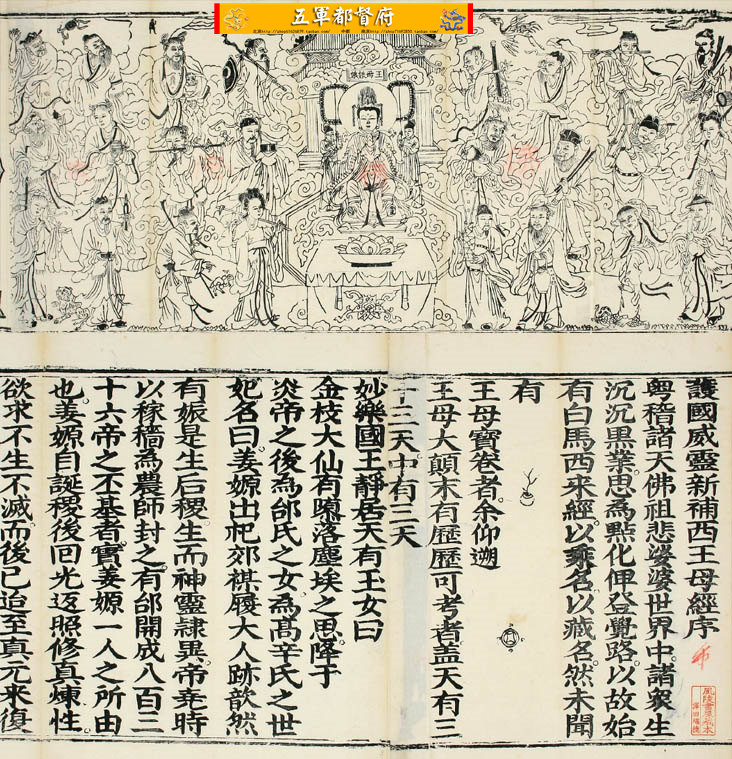 五軍都督府
護國威靈新補西王母經序
粵稽諸天佛祖悲婆婆世界中諸衆生
沉沉黒業思為點化俾登覺路以故始
有白馬西來經以乘名以藏名然未聞
有
王母寶卷者余仰遡
王母大顛末有歷歷可考者盖天有三
十三天中有三天
妙樂國王靜居天有玉女曰
金枝大仙有隙落塵埃之思降于
炎帝之後為邰氏之女為髙辛氏之世
妃名曰姜嫄出祀郊禖履大人跡歆然
有娠是生后稷生而神靈隷異帝堯時
以稼穡為農師封之有邰開成八百三
十六帝之丕基者實姜嫄一人之所由
也姜嫄自誕稷後回光返照修真煉性
欲求不生不滅而後已迨至真元來復
風陵書屋藏本
澤田瑞穗